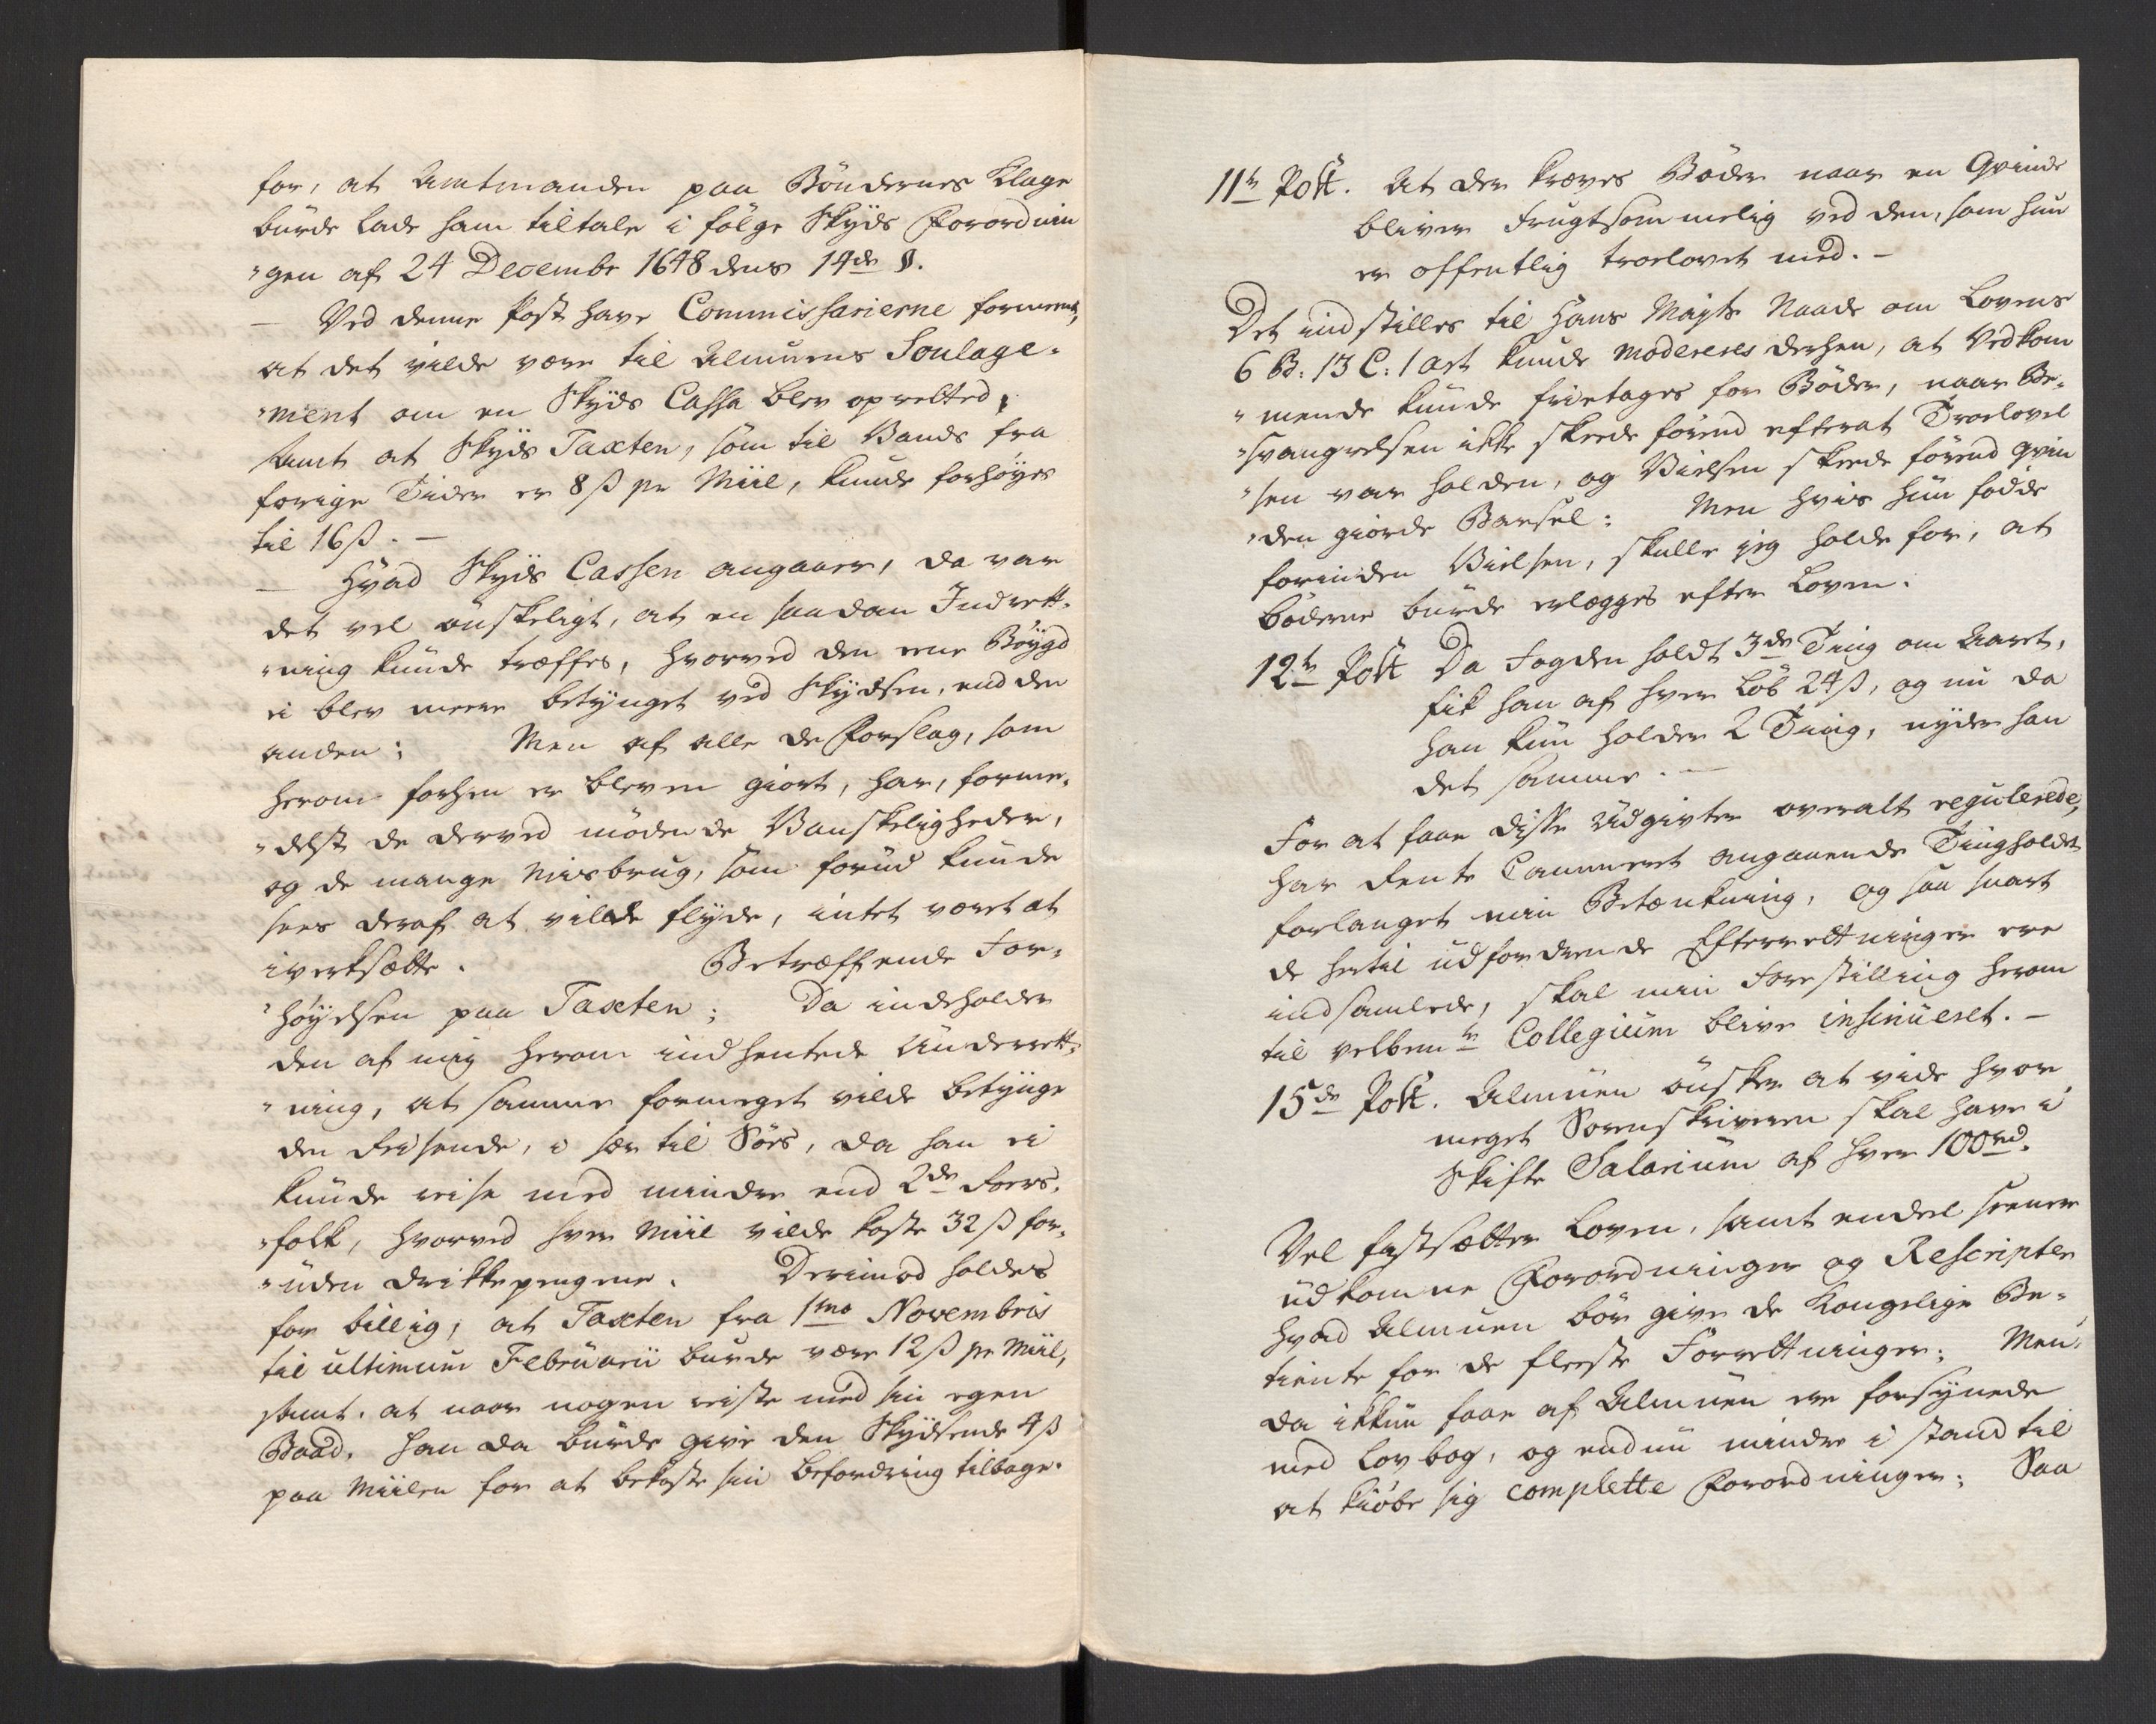 for, at Amtmanden paa Bøndernes Klage
burde lade ham tiltale i følge Skyds Forordnin
"gen af 24 Decembr 1648 dens 14de §.
— Ved denne Post have Commissarierne formeent,
at det vilde være til Almuens Soulage-
"ment om en Skyds Cassa blev opretted,
samt at Skyds Taxten, som til Vands fra
forige Tider er 8 ß pr Miil, kunde forhøyes
til 16 ß. —
— Hvad Skyds Cassen angaaer, da var
det vel ønskeligt, at en saadan Indrett-
"ning kunde træffes, hvorved den eene Bøygd
ei blev meere betynget ved Skydsen, end den
anden: Men af alle de Forslag, som
herom forhen er bleven giort, har, forme-
"delst de derved mødende Vanskeligheder,
og de mange Misbrug, som forud kunde
sees deraf at vilde flyde, intet været at
iverksætte. Betræffende For-
"høyelsen paa Taxten; Da indeholder
den af mig herom indhentede Underrett-
"ning, at samme formeget vilde betynge
den Reisende, i sær til Søes, da han ei
kunde reise med mindre end 2de Roers-
"folk, hvorved hver Miil vilde koste 32 ß for-
"uden Drikkepengene. Derimod holdes
for billig, at Taxten fra 1mo Novembris
til ultimum Februarii burde være 12 ß pr Miil,
samt. at naar nogen reiste med sin egen
Baad, han da burde give den Skydsende 4 ß
paa Miilen for at bekoste sin Befordring tilbage.
11te Post. At der kræves Bøder naar en Qvinde
bliver Frugtsommelig ved den, som hun
er offentlig troelovet med. —
Det indstilles til Hans Mayts Naade om Lovens
6 B: 13 C: 1 art kunde modereres derhen, at Vedkom
"mende kunde frietages for Bøder, naar Be-
"svangrelsen ikke skeede førend efterat Troelovel
"sen var holden, og Vielsen skeede førend Qvin
"den giorde Barsel: Men hvis hun fødde
forinden Vielsen, skulle jeg holde for, at
bøderne burde erlægges efter Loven.
12te Post Da Fogden holdt 3de Ting om Aaret,
fik han af hver Løb 24 ß, og nu da
han kun holder 2 Ting, nyder han
det samme. —
For at faae disse Udgivter overalt regulerede,
har Rente Cammeret angaaende Tingholdet
forlanget min Betænkning, og saa snart
de hertil udfordrende Efterrettninger ere
indsamlede, skal min Forestilling herom
til velbemte Collegium blive insinueret. —
15de Post. Almuen ønsker at vide hvor
meget Sorenskriveren skal have i
Skifte Salarium af hver 100 rd.
Vel fastsætter Loven, samt endeel seenere
udkomne Forordninger og Rescripter
hvad Almuen bør give de Kongelige Be-
tiente for de fleeste Forrettninger; Men
da ikkun faae af Almuen ere forsynede
med Lovbog, og endnu mindre i stand til
at kiøbe sig complette Forordninger; Saa